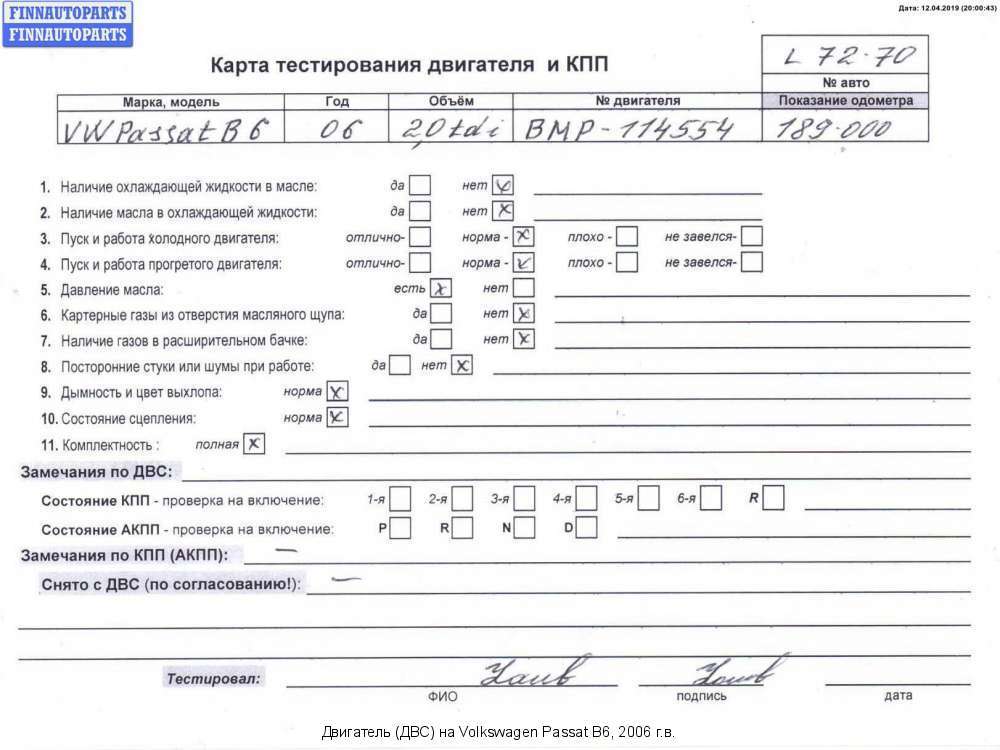 FINNAUTOPARTS
FINNAUTOPARTS
Дата: 12.04.2019 (20:00:43)
Карта тестирования двигателя и КПП
L 72-70
№ авто
Марка, модель Год Объём № двигателя Показание одометра
VW Passat B6 06 2,0 tdi BMP-114554 189.000
1. Наличие охлаждающей жидкости в масле: да нет
2. Наличие масла в охлаждающей жидкости: да нет
3. Пуск и работа холодного двигателя: отлично- норма - плохо - не завелся-
4. Пуск и работа прогретого двигателя: отлично- норма - плохо - не завелся-
5. Давление масла: есть нет
6. Картерные газы из отверстия масляного щупа: да нет
7. Наличие газов в расширительном бачке: да нет
8. Посторонние стуки или шумы при работе: да нет
9. Дымность и цвет выхлопа: норма
10. Состояние сцепления: норма
11. Комплектность : полная
Замечания по ДВС:
Состояние КПП - проверка на включение: 1-я 2-я 3-я 4-я 5-я 6-я R
Состояние АКПП - проверка на включение: P R N D
Замечания по КПП (АКПП): —
Снято с ДВС (по согласованию!): —
Тестировал:
ФИО подпись дата
Двигатель (ДВС) на Volkswagen Passat B6, 2006 г.в.